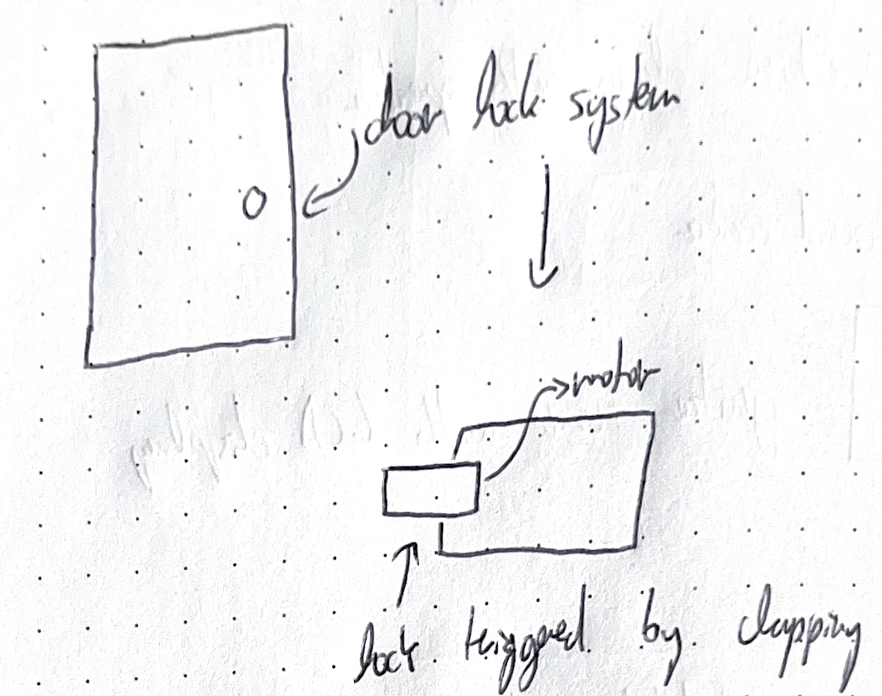 door lock system
motor
lock triggered by clapping